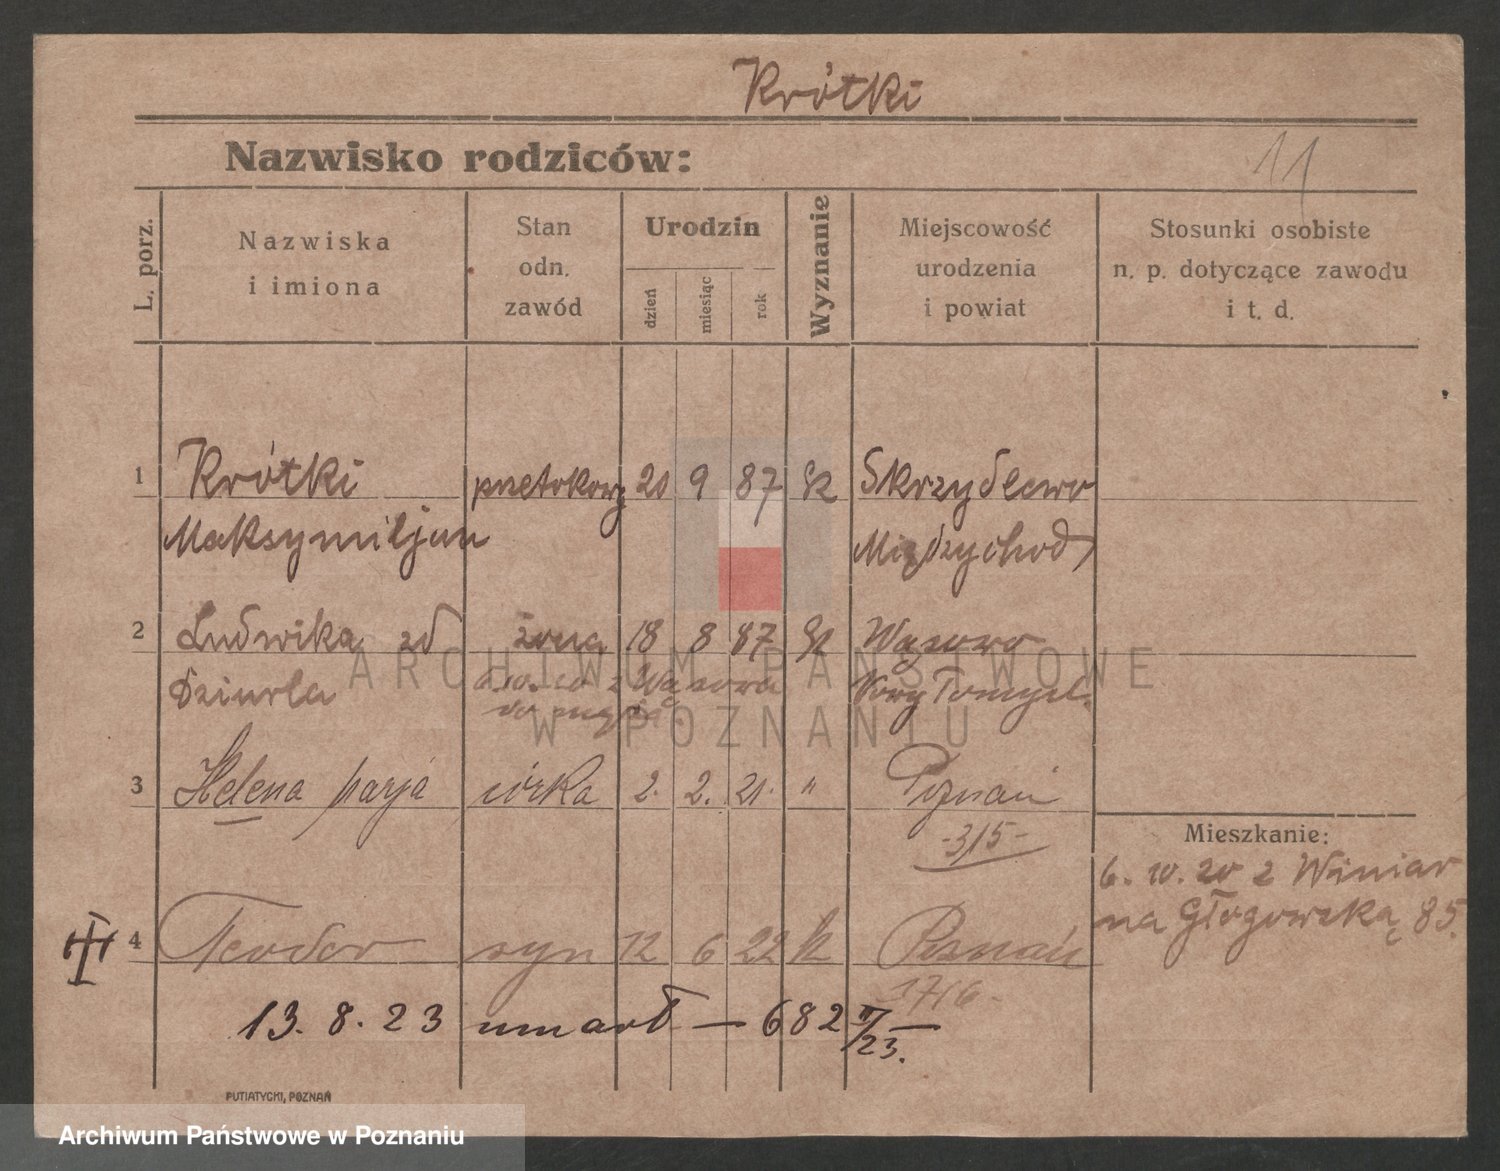 Krótki
Nazwisko rodziców:
11
L. porz.
Nazwiska
i imiona
Stan
odn.
zawód
Urodzin
dzień
miesiąc
rok
Wyznanie
Miejscowość
urodzenia
i powiat
Stosunki osobiste
n. p. dotyczące zawodu
i t. d.
1 Krótki przetokowy 20 9 87 rk Skrzydlewo
Maksymiljan Międzychod
2 Ludwika zd żona 18 8 87 rk Wąsowo
Dziurla 6.10.20 z Wąsowa Nowy Tomyśl
do męża
3 Helena Marja córka 2. 2. 21. " Poznań
-315-
Mieszkanie:
6. 10. 20 z Winiar
na Głogowską 85.
4 Teodor syn 12 6 22 k Poznań
1716-
13. 8. 23 umarł — 682 II/23.
PUTIATYCKI, POZNAŃ
ARCHIWUM PAŃSTWOWE
W POZNANIU
Archiwum Państwowe w Poznaniu